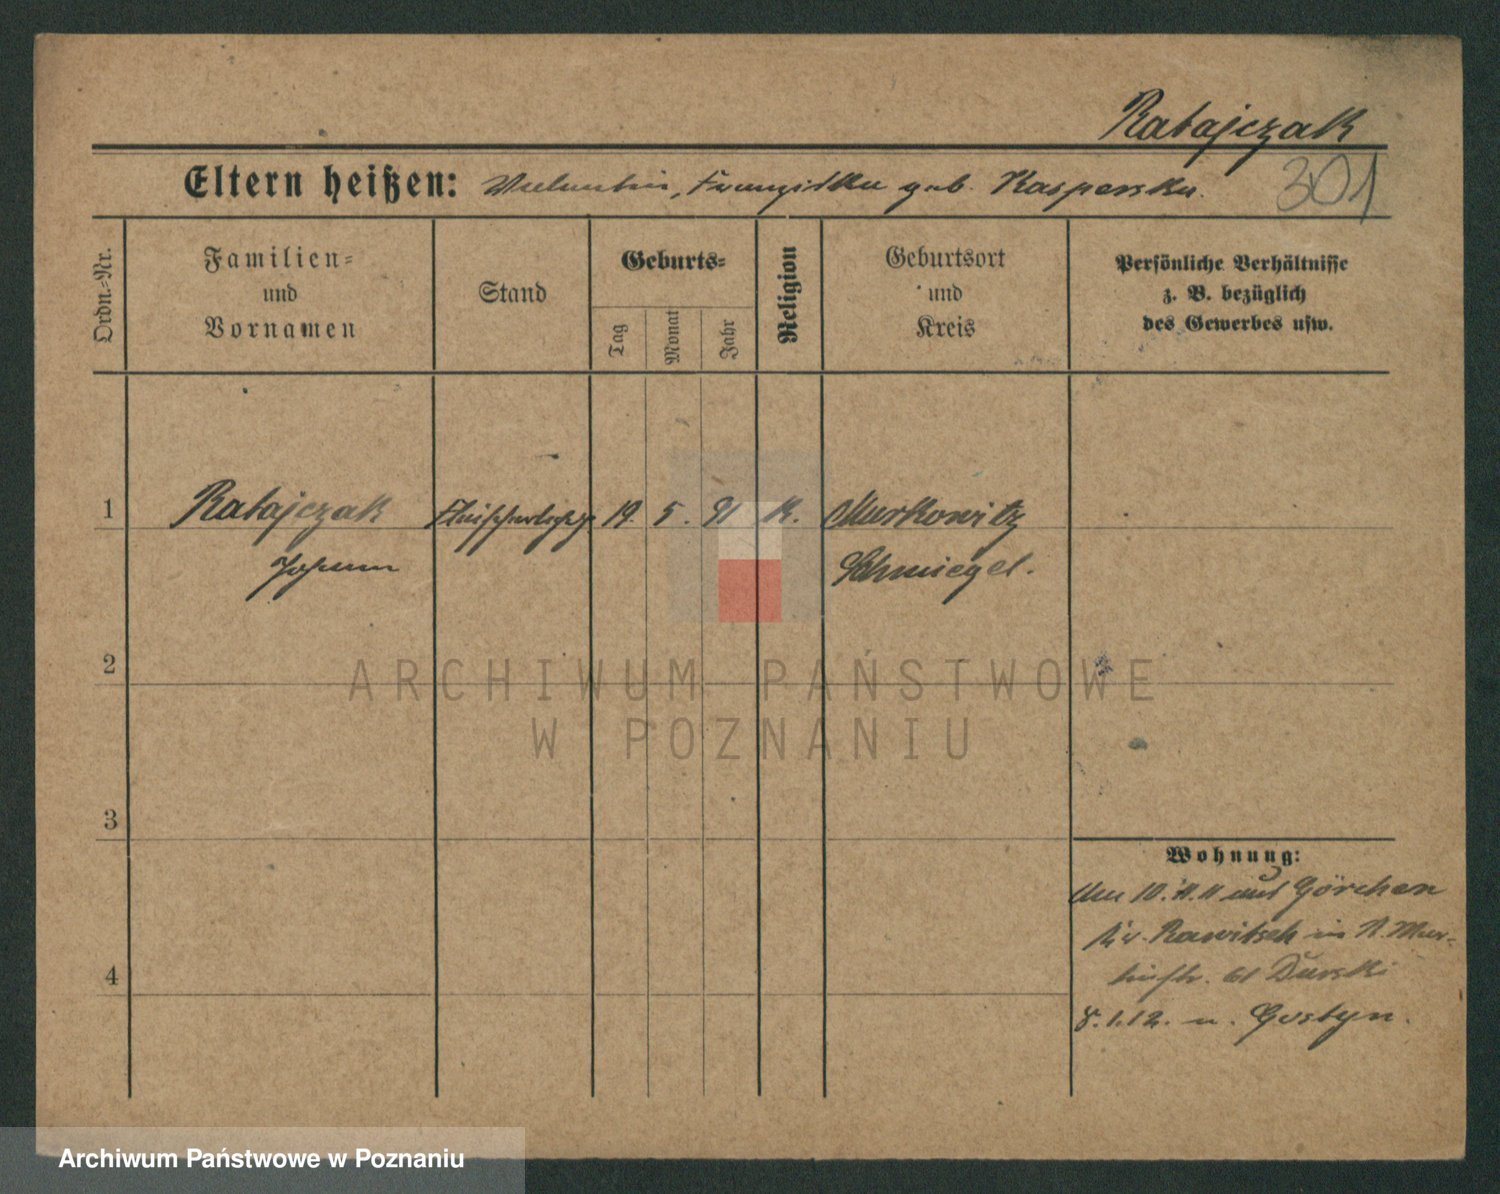 Ratajczak
Eltern heißen: Valentin, Franziska geb. Kasperska.
301
Ordn.-Nr.
Familien-
und
Vornamen
Stand
Geburts-
Tag
Monat
Jahr
Religion
Geburtsort
und
Kreis
Persönliche Verhältnisse
z. B. bezüglich
des Gewerbes usw.
1
Ratajczak
19. 5. 91
K.
Murkowitz
Johann
Schmiegel.
2
ARCHIWUM PAŃSTWOWE
W POZNANIU
3
Wohnung:
Am 10. 11. 11 aus Görchen
Kr. Rawitsch in
Durski
8.1.12. n. Gostyn.
4
Archiwum Państwowe w Poznaniu